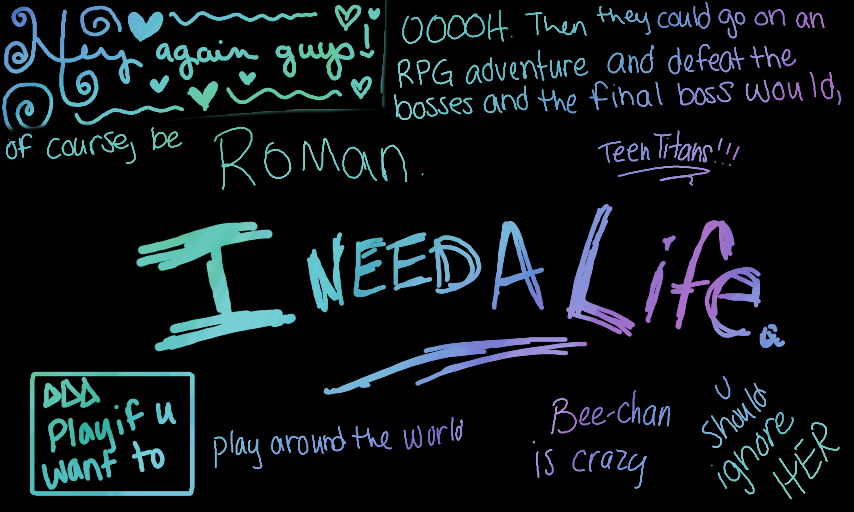 Hey again guys!
OOOOH. Then they could go on an
RPG adventure and defeat the
bosses and the final boss would,
of course, be
ROMAN.
Teen Titans!!!
I NEED A Life.
▷▷▷
Play if u
want to
play around the world
Bee-chan
is crazy
U
should
ignore
HER